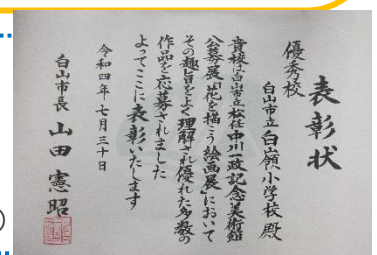 表彰状
優秀校
白山市立白嶺小学校殿
貴校は白山市立松任中川一政記念美術館
公募展「花を描こう絵画展」において
その趣旨をよく理解され優れた多数の
作品を応募されました
よってここに表彰いたします
令和四年七月三十日
白山市長 山田憲昭